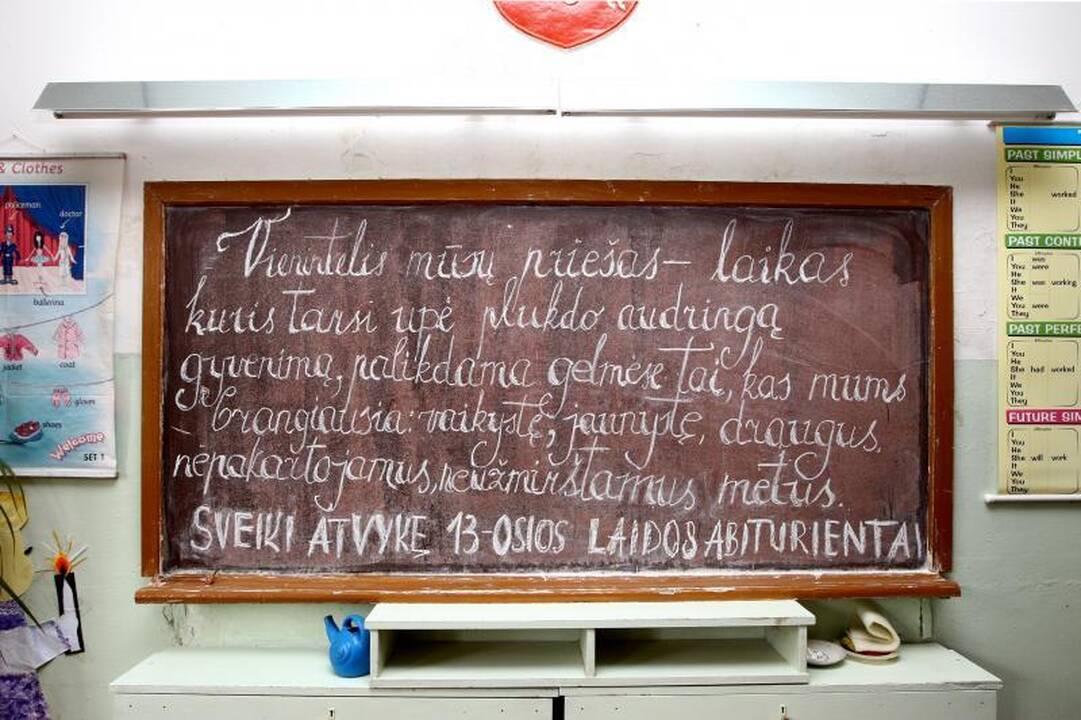 Vienintelis mūsų priešas – laikas
kuris tarsi upė plukdo audringą
gyvenimą, palikdama gelmėse tai, kas mums
– brangiausia: vaikystę, jaunystę, draugus,
nepakartojamus, neužmirštamus metus.
SVEIKI ATVYKĘ 13-OSIOS LAIDOS ABITURIENTAI
& Clothes
policeman
doctor
ballerina
jacket
coat
gloves
shoes
Welcome
SET 1
PAST SIMPL
I
You
He
She worked
It
We
You
They
PAST CONT
I was
You were
He
She was working
It
We
You were
They
PAST PERFE
I
You
He
She had worked
It
We
You
They
FUTURE SIM
I
You
He
She will work
It
We
You
They